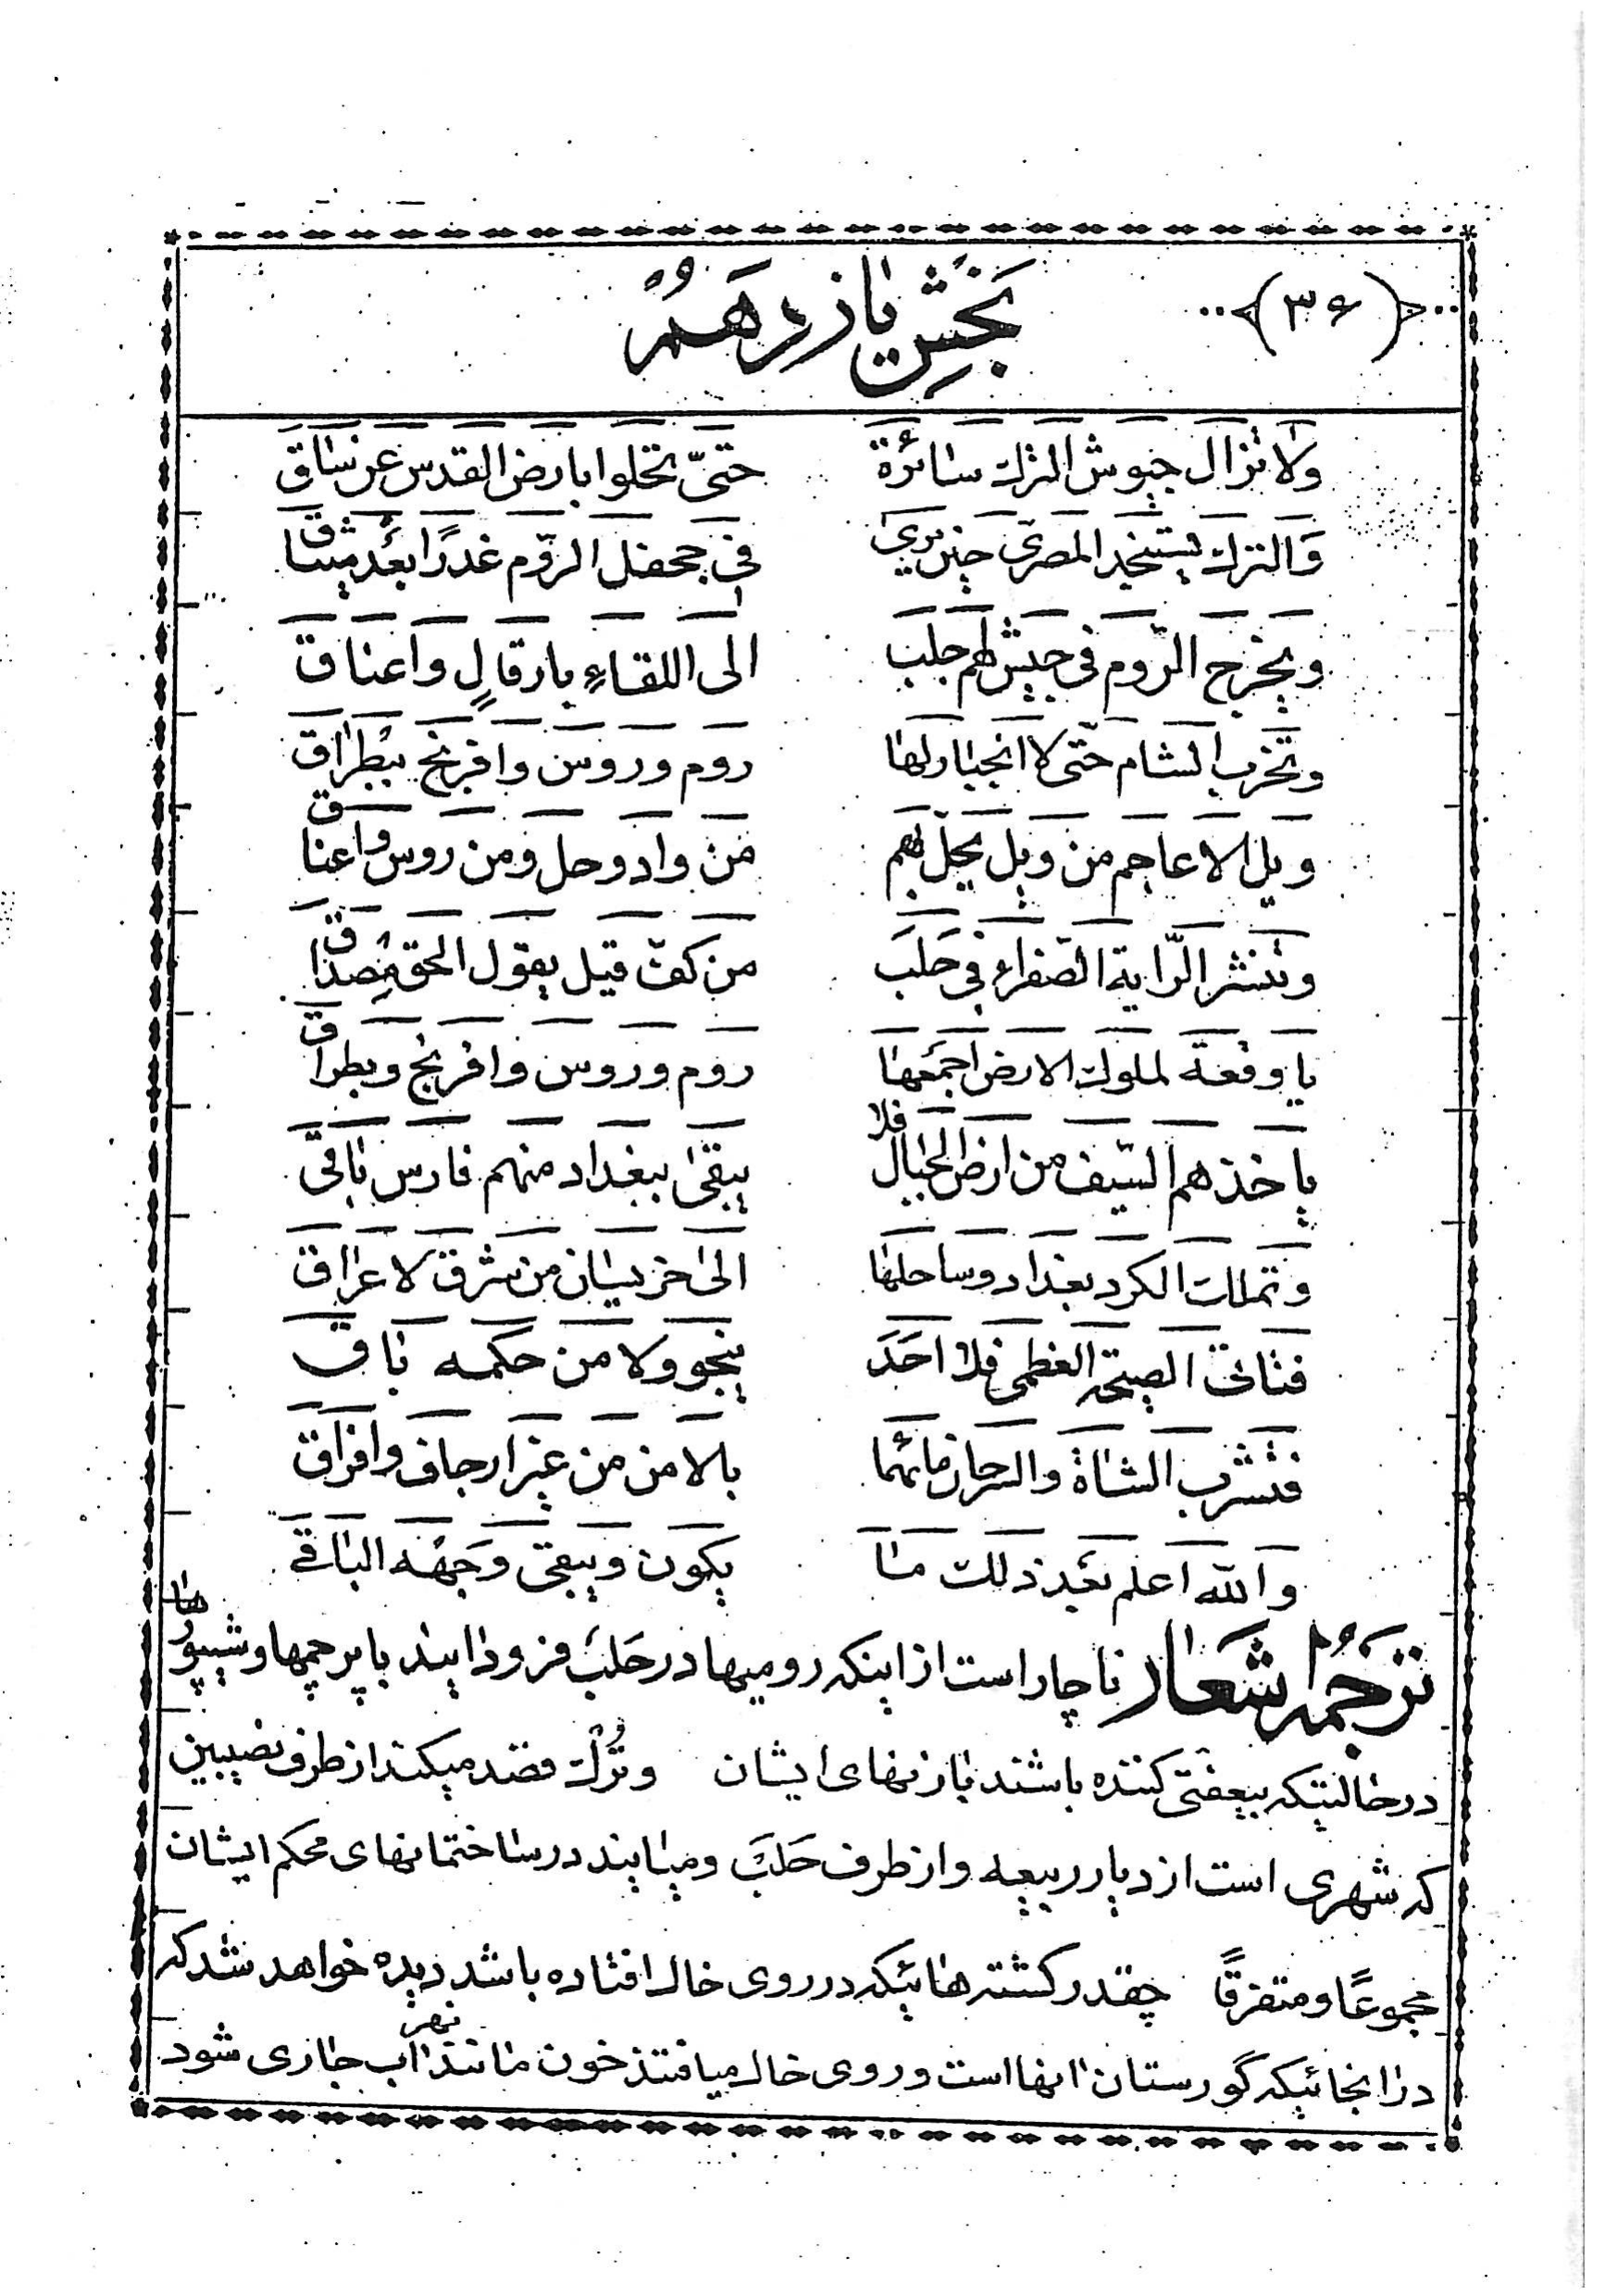 (۳۶) بخش یازدهم
ولا تزال جیوش الترك سائرة حتىّ تحلوا بارض القدس عن ساق
والترك يستنجد المصرى حين يرى فى جحفل الروّم غدرًا بعد ميثاق
ويخرج الرّوم فى جيش لهم جلب الى اللقاءِ بارقالٍ واعناق
وتخرب الشام حتّى لا انجبار لها روم وروس وافرنج ببطراق
ويل الاعاجم من ويل يحلّ بهم من واد وحل ومن روس واعناق
وتنشر الرّاية الصّفراء فى حلب من كفّ قيل يقول الحق مصداق
يا وقعة لملوك الارض اجمعها روم وروس وافرنج وبطراق
ياخذهم السّيف من ارض الجبال فلا يبقى ببغداد منهم فارس باقى
وتملك الكرد بغداد وساحلها الى خريسان من شرق لاعراق
فتات الصيحة العظمى فلا احد ينجو ولا من حكمه باق
فتشرب الشاة والسرحان مائهما بالامن من غير ارجاف وافراق
والله اعلم بعد ذلك ما يكون ويبقى وجهه الباقى
ترجمه اشعار ناچار است از اینکه رومیها در حلب فرود ایند با پرچمها و شیپورها
در حالتیکه بیعفتی کننده باشند با زنهای ایشان وترك قصد میکند از طرف نصیبین
که شهری است از دیار ربیعه و از طرف حلب ومیایند در ساختمانهای محکم ایشان
مجموعًا ومتفرقًا چقدر کشته هائیکه در روی خاك افتاده باشد دیده خواهد شد که
در انجائیکه گورستان انها است و روی خاك میافتند خون مانند نهر اب جاری شود